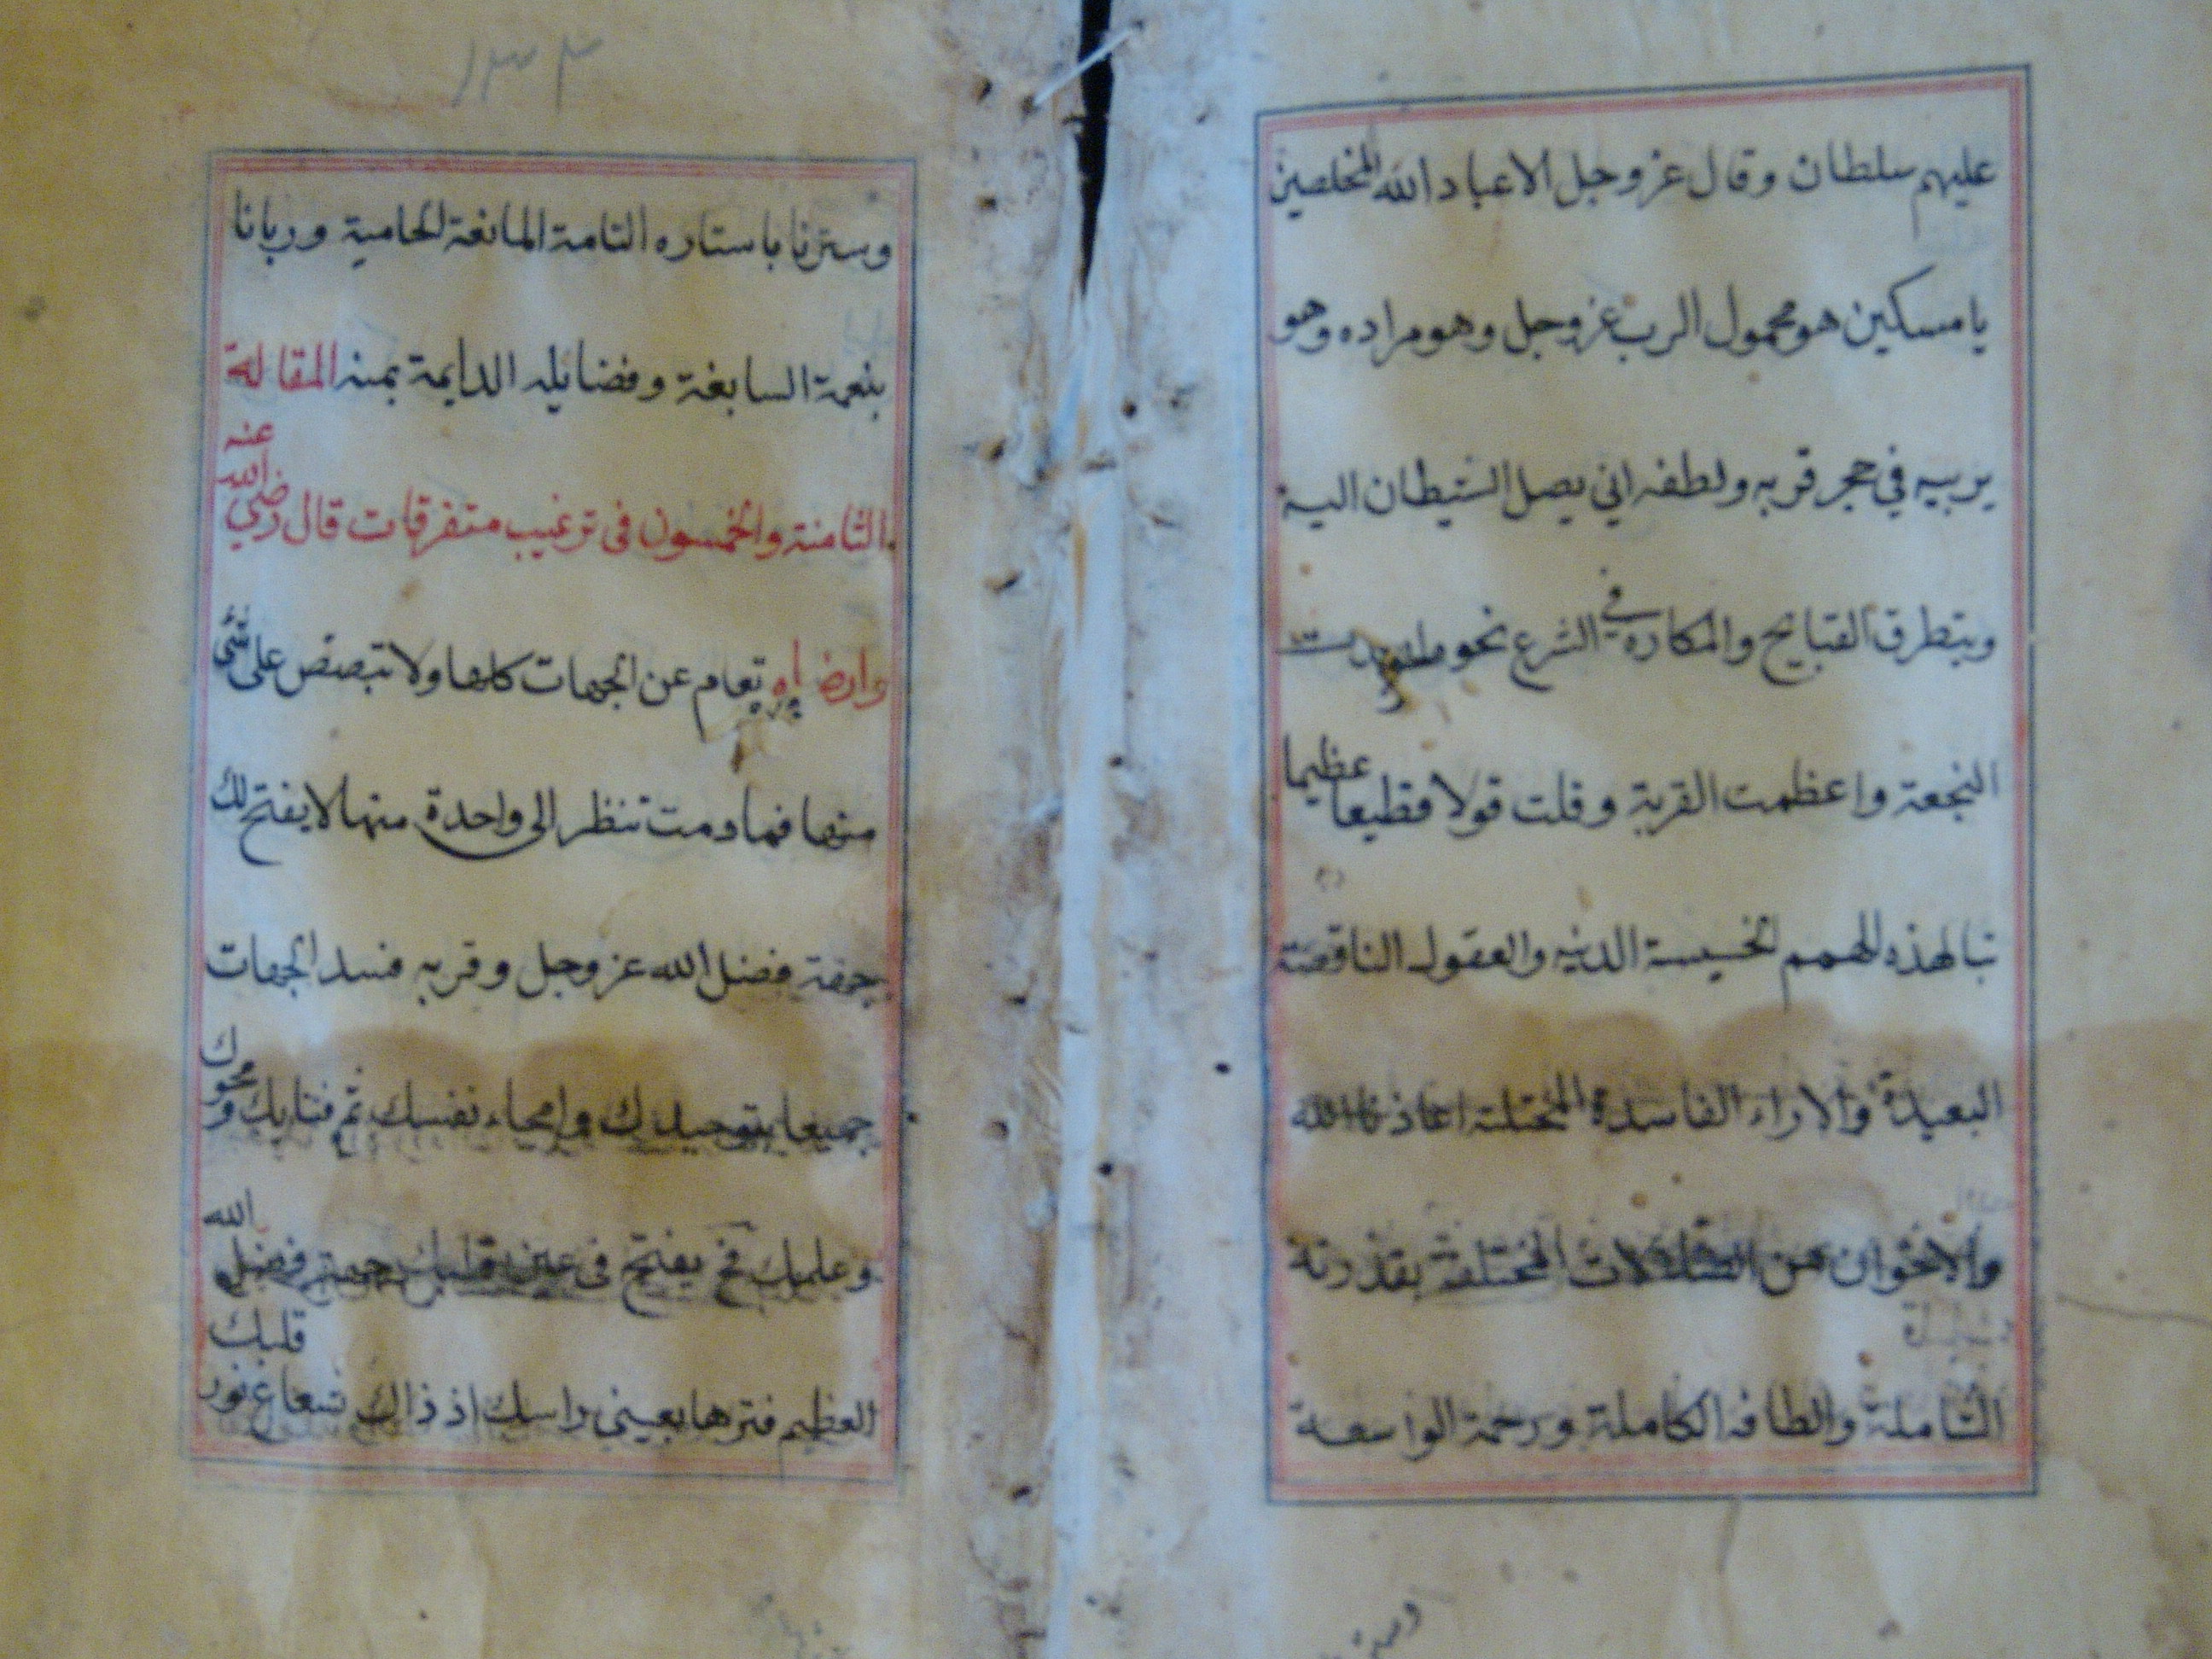 عليهم سلطان وقال عز وجل الا عباد الله المخلصين
يا مسكين هو محمول الرب عز وجل وهو مراده وهو
يربيه في حجر قربه ولطفه اني يصل الشيطان اليه
ويتطرق القبايح والمكاره في الشرع نحوه
النجعة واعظمت القربة وقلت قولا فظيعا عظيما
تبا لهذه الهمم الخسيسة الدنيه والعقول الناقصة
البعيدة والاراء الفاسدة المختلة اعاذنا الله
والاخوان من المختلفة بقدرته
الشاملة والطافه الكاملة ورحمة الواسعة
١٣٣
وسترنا باستاره التامة المانعة الحامية وربانا
بنعمة السابغة وفضايله الدايمة بمنه المقالة
الثامنة والخمسون في ترغيب متفرقات قال رضي الله عنه
وارضاه تعام عن الجهات كلها ولا تبصص على شي
منها فما دمت تنظر الى واحدة منها لا يفتح لك
جهة فضل الله عز وجل وقربه فسد الجهات
جميعا بتوحيدك وامحاء نفسك ثم فنايك ومحوك
وعلمك فح يفتح في عين قلبك جهة فضل الله
العظيم فترها بعيني راسك اذ ذاك شعاع نور قلبك